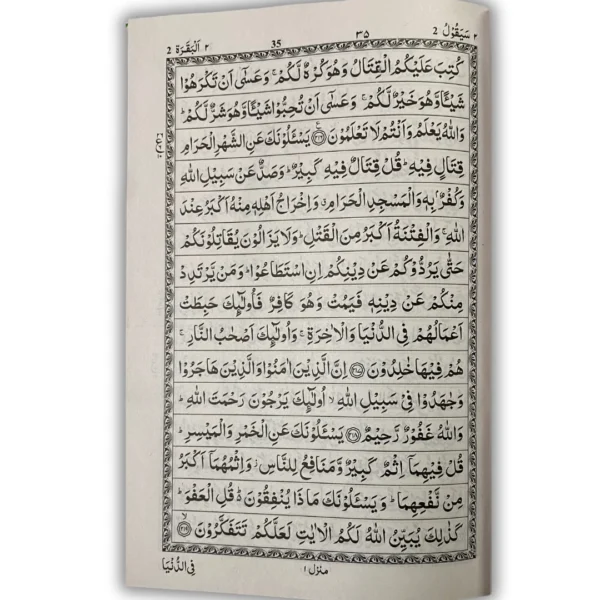 سَيَقُوْلُ 2 ٣٥ 35 ٢ اَلْبَقَرَة 2
كُتِبَ عَلَيْكُمُ الْقِتَالُ وَهُوَ كُرْهٌ لَّكُمْ ۚ وَعَسٰۤى اَنْ تَكْرَهُوْا
شَيْـًٔا وَّهُوَ خَيْرٌ لَّكُمْ ۚ وَعَسٰۤى اَنْ تُحِبُّوْا شَيْـًٔا وَّهُوَ شَرٌّ لَّكُمْ ؕ
وَاللّٰهُ يَعْلَمُ وَاَنْتُمْ لَا تَعْلَمُوْنَ ﴿٢١٦﴾ يَسْـَٔلُوْنَكَ عَنِ الشَّهْرِ الْحَرَامِ
قِتَالٍ فِيْهِ ؕ قُلْ قِتَالٌ فِيْهِ كَبِيْرٌ ؕ وَصَدٌّ عَنْ سَبِيْلِ اللّٰهِ
وَكُفْرٌۢ بِهٖ وَالْمَسْجِدِ الْحَرَامِ ۗ وَاِخْرَاجُ اَهْلِهٖ مِنْهُ اَكْبَرُ عِنْدَ
اللّٰهِ ۚ وَالْفِتْنَةُ اَكْبَرُ مِنَ الْقَتْلِ ؕ وَلَا يَزَالُوْنَ يُقَاتِلُوْنَكُمْ
حَتّٰى يَرُدُّوْكُمْ عَنْ دِيْنِكُمْ اِنِ اسْتَطَاعُوْا ؕ وَمَنْ يَّرْتَدِدْ
مِنْكُمْ عَنْ دِيْنِهٖ فَيَمُتْ وَهُوَ كَافِرٌ فَاُولٰٓئِكَ حَبِطَتْ
اَعْمَالُهُمْ فِى الدُّنْيَا وَالْاٰخِرَةِ ۚ وَاُولٰٓئِكَ اَصْحٰبُ النَّارِ ۚ
هُمْ فِيْهَا خٰلِدُوْنَ ﴿٢١٧﴾ اِنَّ الَّذِيْنَ اٰمَنُوْا وَالَّذِيْنَ هَاجَرُوْا
وَجٰهَدُوْا فِىْ سَبِيْلِ اللّٰهِ ۙ اُولٰٓئِكَ يَرْجُوْنَ رَحْمَتَ اللّٰهِ ؕ
وَاللّٰهُ غَفُوْرٌ رَّحِيْمٌ ﴿٢١٨﴾ يَسْـَٔلُوْنَكَ عَنِ الْخَمْرِ وَالْمَيْسِرِ ؕ
قُلْ فِيْهِمَاۤ اِثْمٌ كَبِيْرٌ وَّمَنَافِعُ لِلنَّاسِ ۫ وَاِثْمُهُمَاۤ اَكْبَرُ
مِنْ نَّفْعِهِمَا ؕ وَيَسْـَٔلُوْنَكَ مَاذَا يُنْفِقُوْنَ ۬ؕ قُلِ الْعَفْوَ ؕ
كَذٰلِكَ يُبَيِّنُ اللّٰهُ لَكُمُ الْاٰيٰتِ لَعَلَّكُمْ تَتَفَكَّرُوْنَ ۙ﴿٢١٩﴾
منزل ١ فِى الدُّنْيَا